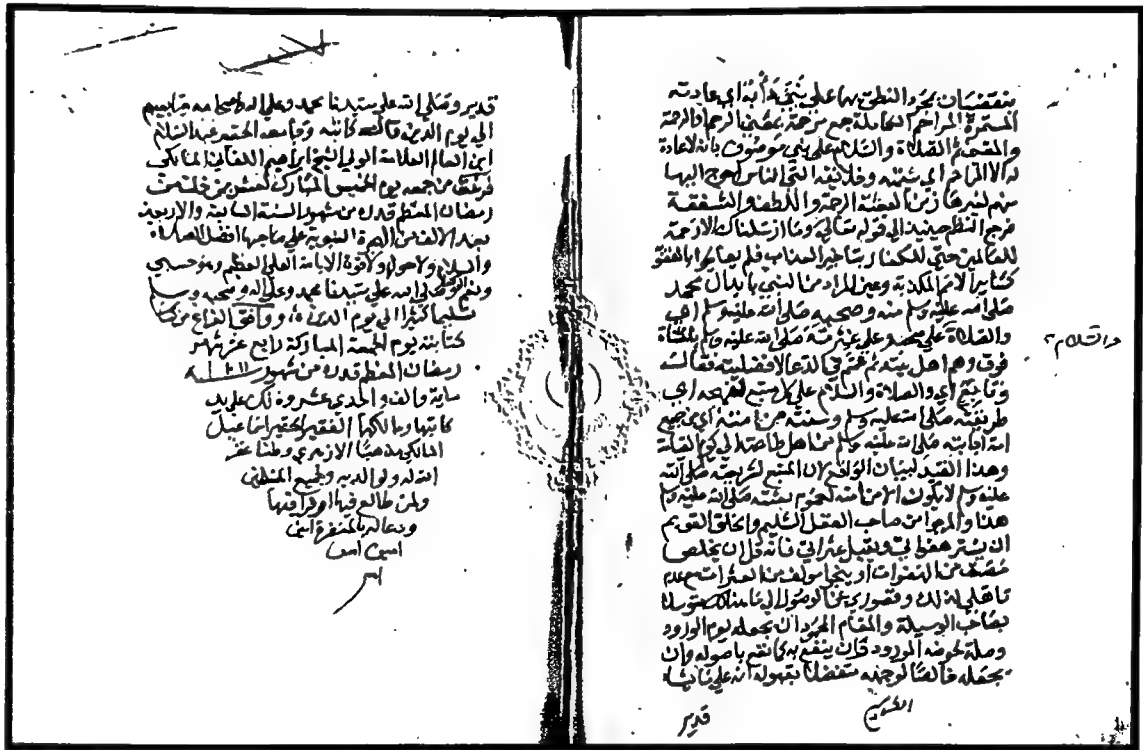 يقتضيان بمجرد النطق بها على شيء دأبه أي عادته
المستمرة المراحم الكاملة جمع مرحمة بمعنى الرحم والرحمة
والمقصد ثم الصلاة والسلام على نبي موصوف بأنه لا عادة
له الا المراحم أي شيمته وخلائقه التي الناس أحوج اليها
منهم لغيرها من العطية الرحمة واللطف والشفقة
مرجع النظم حينئذ الى قوله تعالى وما ارسلناك الا رحمة
للعالمين حتى للكفار بتأخير العذاب فلم يعاجلوا بالعقوبة
كسائر الأمم المكذبة وعين المراد من النبي بابدال محمد
صلى الله عليه وسلم منه وصحبه صلى الله عليه وسلم أي
والصلاة على صحبه وعلى عترته صلى الله عليه وسلم بالمثناة
والسلام
فوق وهم أهل بيته ثم عمم في الدعا لافضليته فقال
وتابع أي والصلاة والسلام على كل متبع لنهجه أي
طريقته صلى الله عليه وسلم وسنته من أمته أي جميع
امة اجابته صلى الله عليه وسلم من أهل طاعته الى يوم القيامة
وهذا القيد لبيان الواقع لان المتبع لشريعته صلى الله
عليه وسلم لا يكون الا من امته لعموم بعثته صلى الله عليه وسلم
هذا والمرجو من صاحب العقل السليم والخلق القويم
ان يستر هفواتي ويقيل عثراتي فانه قل ان يخلص
مصنف من الهفوات أو ينجو مؤلف من العثرات مع عدم
تأهلي لذلك وقصوري عن الوصول الى ما هنالك متوسلا
بصاحب الوسيلة والمقام المحمود ان يجعله يوم الورود
وصلة لحوضه المورود وان ينفع به كما نفع باصوله وان
يجعله خالصا لوجهه متفضلا بقبوله انه على ما يشاء
قدير
قدير وصلى الله على سيدنا محمد وعلى اله واصحابه وتابعيهم
الى يوم الدين قال كاتبه وجامعه الحقير عبد السلام
ابن العالم العلامة الولي الشيخ ابراهيم اللقاني المالكي
فرغت من جمعه يوم الخميس المبارك لعشرين خلت من
رمضان المعظم قدره من شهور السنة السابعة والاربعين
بعد الالف من الهجرة النبوية على صاحبها افضل الصلاة
والسلام ولا حول ولا قوة الا بالله العلي العظيم وهو حسبي
ونعم الوكيل وصلى الله على سيدنا محمد وعلى اله وصحبه وسلم
تسليما كثيرا الى يوم الدين ووافق الفراغ من
كتابته يوم الجمعة المباركة رابع عشر شهر
رمضان المعظم قدره من شهور سنة
ماية والف واحدى عشر وذلك على يد
كاتبها ومالكها الفقير الحقير اسماعيل
المالكي مذهبا الازهري وطنا غفر
الله له ولوالديه ولجميع المسلمين
ولمن طالع فيها او قرا فيها
ودعا له بالمغفرة امين
امين امين
امين